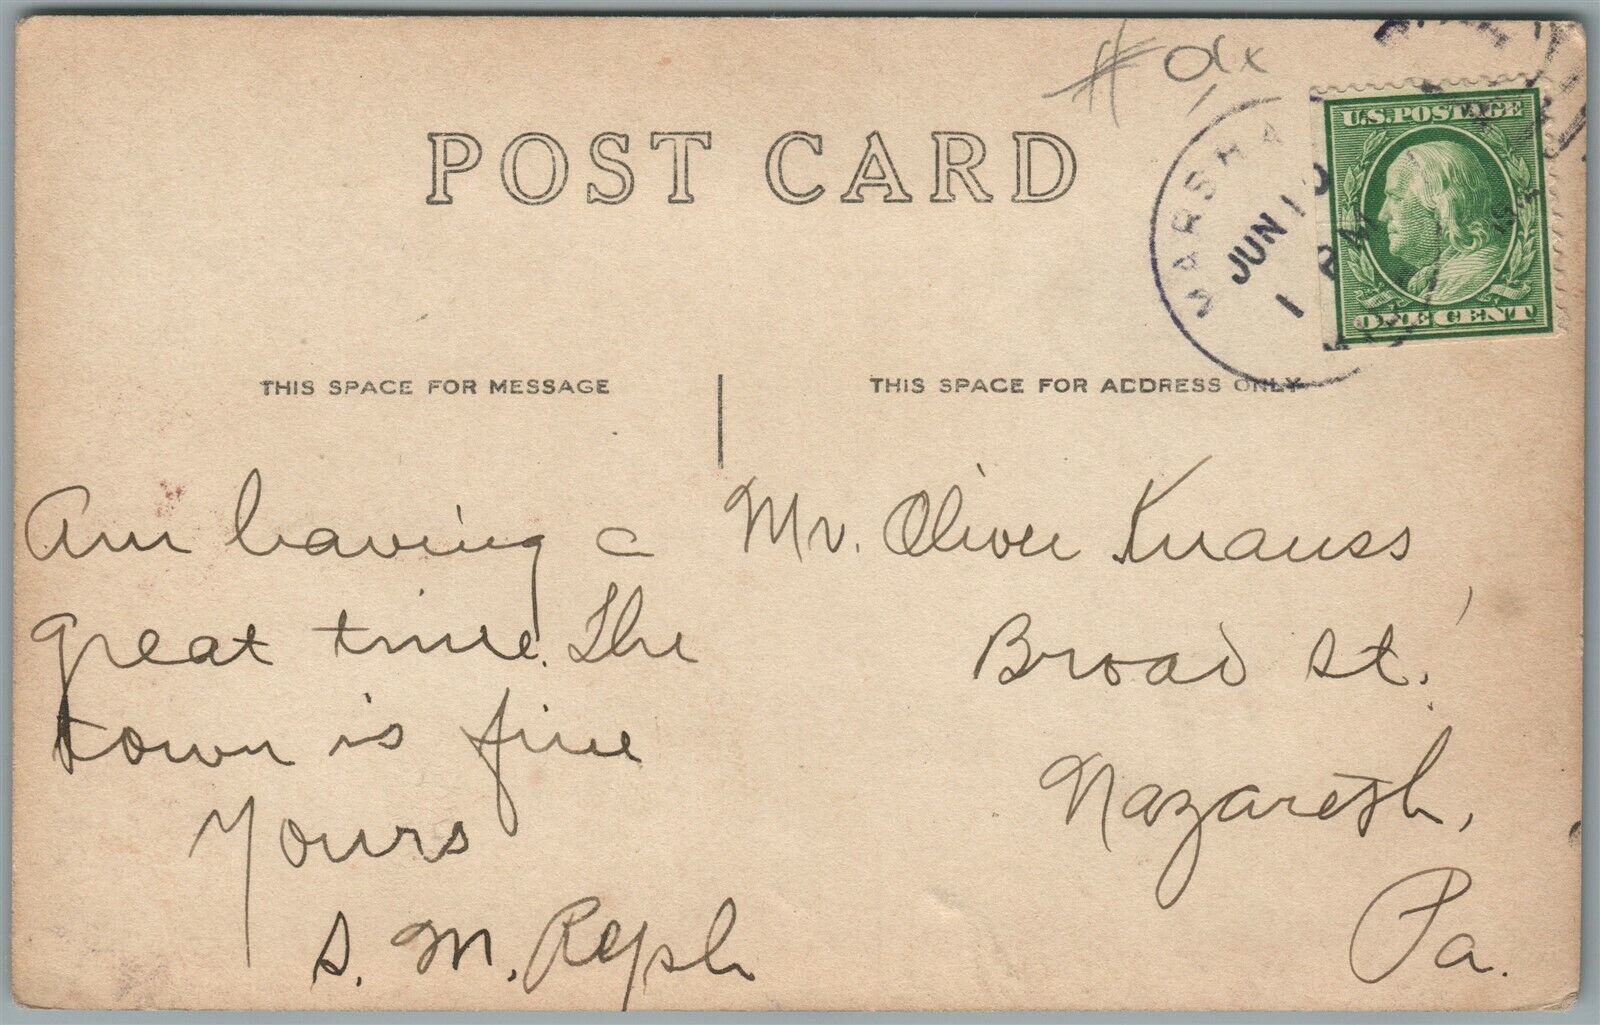 POST CARD
U.S. POSTAGE
ONE CENT
JUN 10
THIS SPACE FOR MESSAGE
THIS SPACE FOR ADDRESS ONLY
Am having a
great time. The
town is fine
Yours
S. M. Reph
Mr. Oliver Knauss,
Broad St.
Nazareth,
Pa.